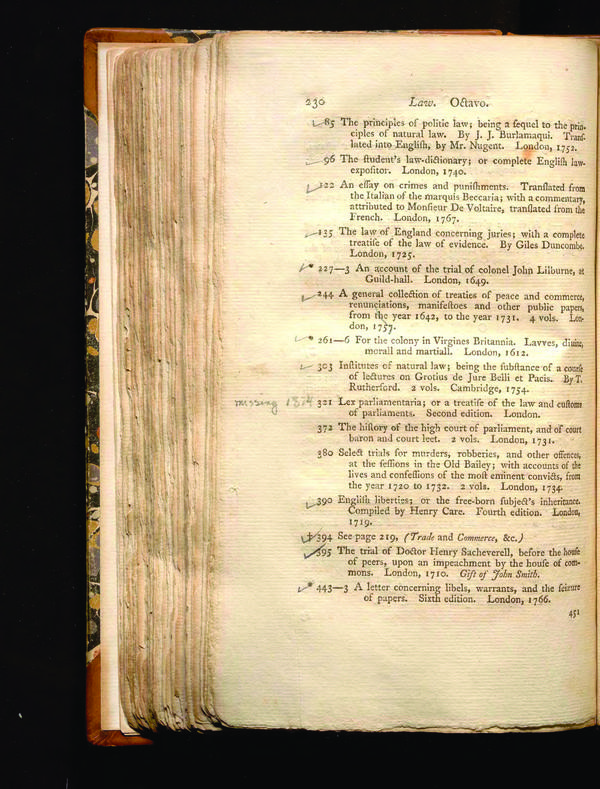 230 Law. Octavo.
85 The principles of politic law; being a ſequel to the prin-
ciples of natural law. By J. J. Burlamaqui. Tranſ-
lated into Engliſh, by Mr. Nugent. London, 1752.
96 The ſtudent's law-dictionary; or complete Engliſh law-
expoſitor. London, 1740.
122 An eſſay on crimes and puniſhments. Tranſlated from
the Italian of the marquis Beccaria; with a commentary,
attributed to Monſieur De Voltaire, tranſlated from the
French. London, 1767.
135 The law of England concerning juries; with a complete
treatiſe of the law of evidence. By Giles Duncombe.
London, 1725.
* 227—3 An account of the trial of colonel John Lilburne, at
Guild-hall. London, 1649.
244 A general collection of treaties of peace and commerce,
renunciations, manifeſtoes and other public papers,
from the year 1642, to the year 1731. 4 vols. Lon-
don, 1757.
* 261—6 For the colony in Virgines Britannia. Lavves, divine,
morall and martiall. London, 1612.
303 Inſtitutes of natural law; being the ſubſtance of a courſe
of lectures on Grotius de Jure Belli et Pacis. By T.
Rutherford. 2 vols. Cambridge, 1754.
missing 1874 321 Lex parliamentaria; or a treatiſe of the law and cuſtoms
of parliaments. Second edition. London.
372 The hiſtory of the high court of parliament, and of court
baron and court leet. 2 vols. London, 1731.
380 Select trials for murders, robberies, and other offences,
at the ſeſſions in the Old Bailey; with accounts of the
lives and confeſſions of the moſt eminent convicts, from
the year 1720 to 1732. 2 vols. London, 1734.
390 Engliſh liberties; or the free-born ſubject's inheritance.
Compiled by Henry Care. Fourth edition. London,
1719.
‡ 394 See page 219, (Trade and Commerce, &c.)
395 The trial of Doctor Henry Sacheverell, before the houſe
of peers, upon an impeachment by the houſe of com-
mons. London, 1710. Gift of John Smith.
* 443—3 A letter concerning libels, warrants, and the ſeizure
of papers. Sixth edition. London, 1766.
451